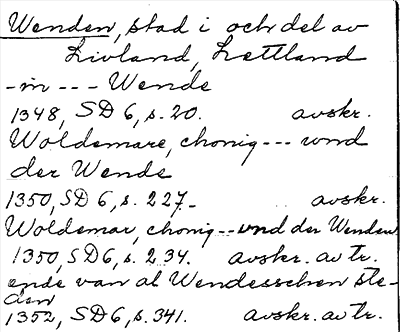 Wenden, stad i och del av
Livland, Lettland
-in --- Wende
1348, SD 6, s. 20. avskr.
Woldemare, chonig --- vnd
der Wende
1350, SD 6, s. 227. avskr.
Woldemar, chonig -- vnd der Wenden
1350, SD 6, s. 234. avskr. av tr.
ende van al Wendesschen ste-
den
1352, SD 6, s. 341. avskr. av tr.